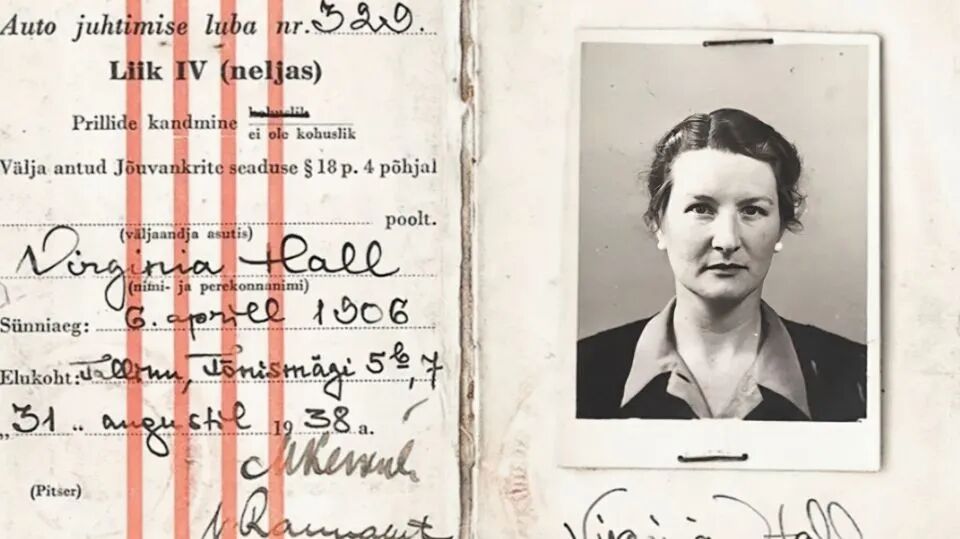 Auto juhtimise luba nr. 329.
Liik IV (neljas)
Prillide kandmine kohuslik
ei ole kohuslik
Välja antud Jõuvankrite seaduse § 18 p. 4 põhjal
poolt.
(väljaandja asutis)
Virginia Hall
(nimi- ja perekonnanimi)
Sünniaeg: 6. aprill 1906
Elukoht: Tallinn, Tõnismägi 5b, 7
„31 „ augustil 1938 a.
(Pitser)
Virginia Hall